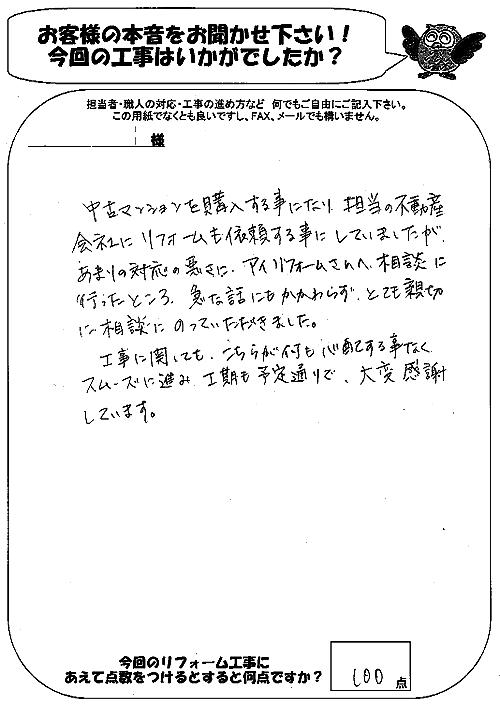 お客様の本音をお聞かせ下さい！
今回の工事はいかがでしたか？
担当者・職人の対応・工事の進め方など　何でもご自由にご記入下さい。
この用紙でなくとも良いですし、FAX、メールでも構いません。
様
中古マンションを購入する事になり、担当の不動産
会社にリフォームも依頼する事にしていましたが、
あまりの対応の悪さに、アイリフォームさんへ相談に
行ったところ、急な話にもかかわらず、とても親切
に相談にのっていただきました。
工事に関しても、こちらが何も心配する事なく
スムーズに進み、工期も予定通りで、大変感謝
しています。
今回のリフォーム工事に
あえて点数をつけるとすると何点ですか？
100点